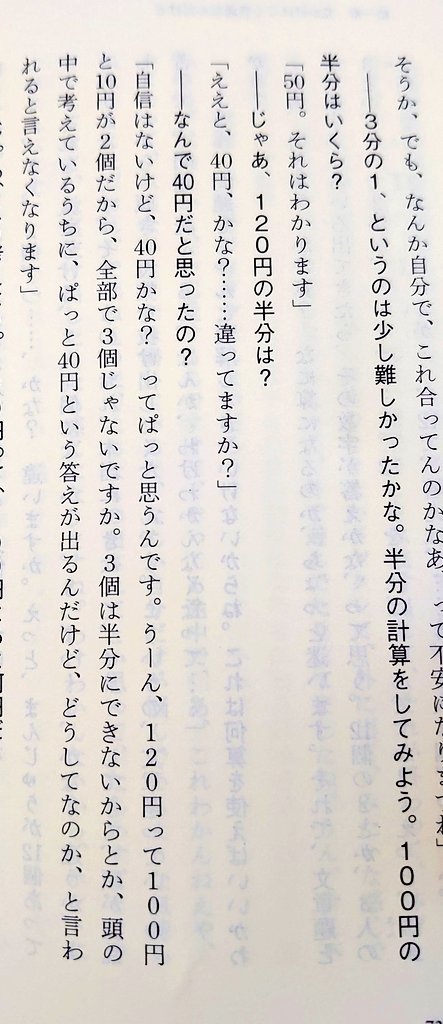 そうか、でも、なんか自分で、これ合ってんのかなあ、って不安になりますね」
――3分の1、というのは少し難しかったかな。半分の計算をしてみよう。100円の
半分はいくら?
「50円。それはわかります」
――じゃあ、120円の半分は?
「ええと、40円、かな?……違ってますか?」
――なんで40円だと思ったの?
「自信はないけど、40円かな? ってぱっと思うんです。うーん、120円って100円
と10円が2個だから、全部で3個じゃないですか。3個は半分にできないからとか、頭の
中で考えているうちに、ぱっと40円という答えが出るんだけど、どうしてなのか、と言わ
れると言えなくなります」